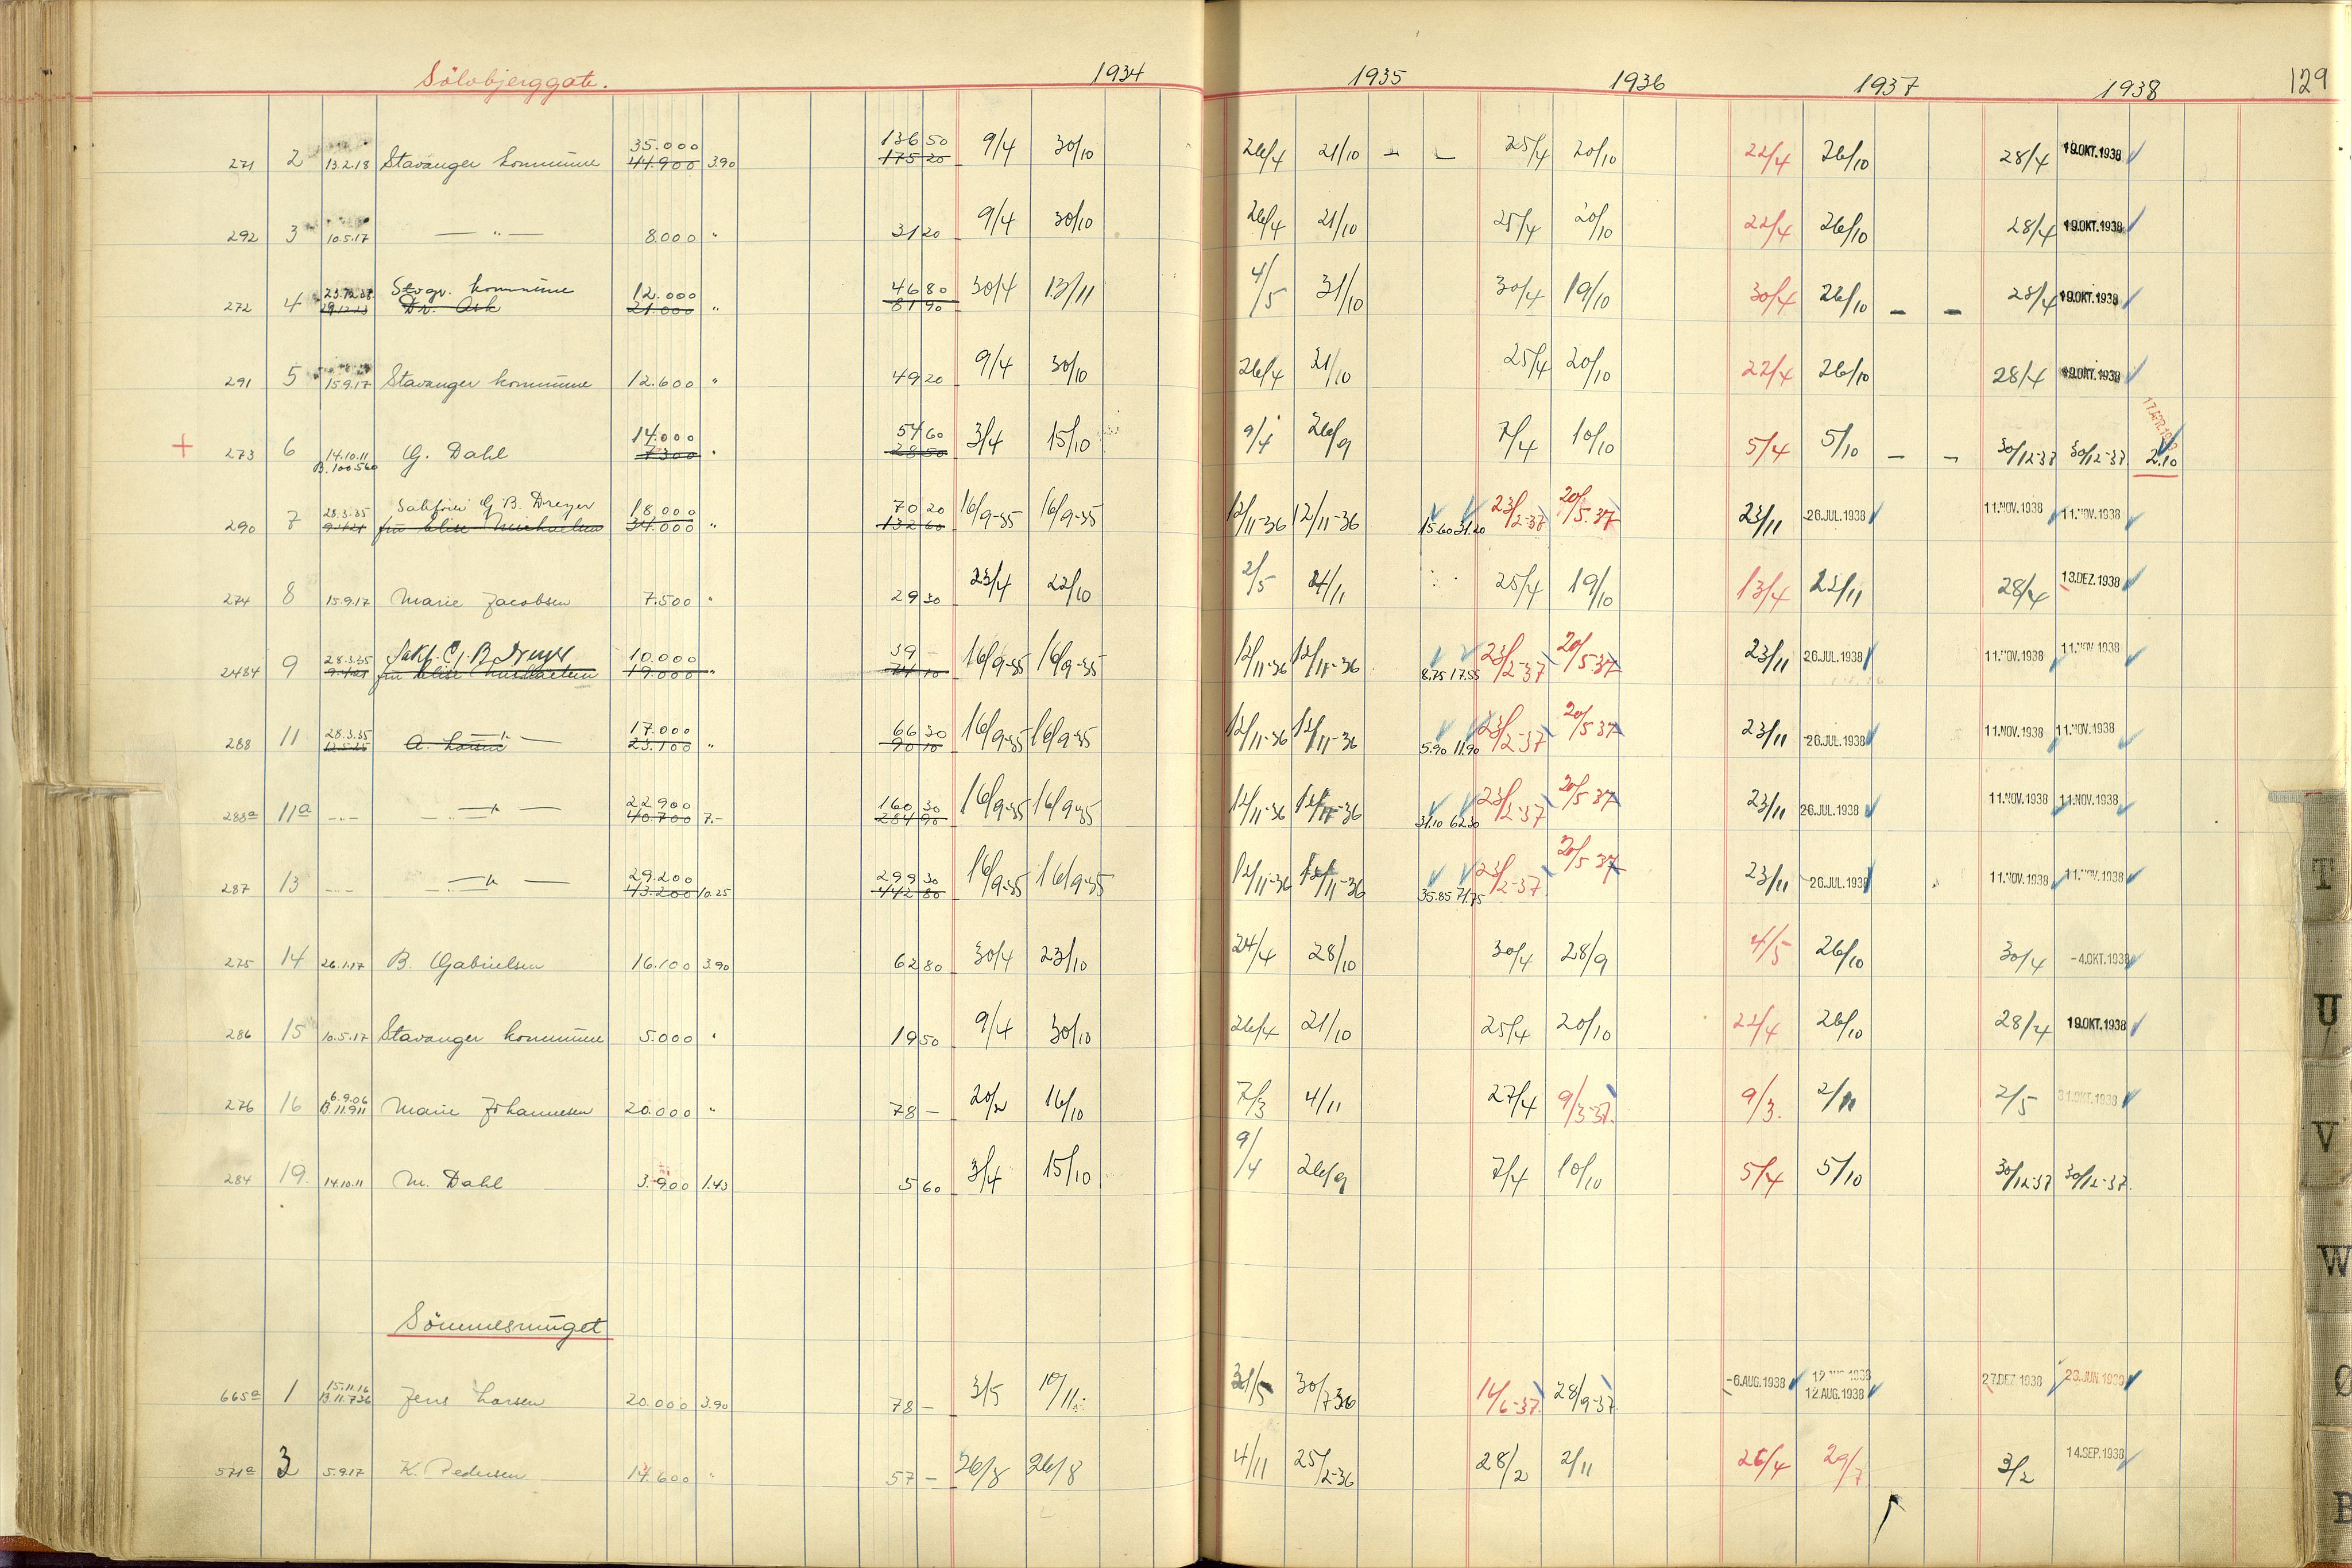 Sölvbjerggate. 1934 1935 1936 1937 1938 129
35.000 136 50
271 2 13.2.18 Stavanger kommune 44.900 3.90 175 20 9/4 30/10 26/4 21/10 – – 25/4 20/10 22/4 26/10 28/4 19.OKT.1938
292 3 10.5.17 — " — 8.000 " 31 20 9/4 30/10 26/4 21/10 25/4 20/10 22/4 26/10 28/4 19.OKT.1938
23.12.38 Stvgr. kommune 12.000 46 80
272 4 Dr. Ask 21.000 " 81 90 30/4 13/11 4/5 31/10 30/4 19/10 30/4 26/10 – – 28/4 19.OKT.1938
291 5 15.9.17 Stavanger kommune 12.600 " 49 20 9/4 30/10 26/4 21/10 25/4 20/10 22/4 26/10 28/4 19.OKT.1938
14.000 54 60
+ 273 6 14.10.11 G. Dahl 7.300 " 28 50 3/4 15/10 9/4 26/9 7/4 10/10 5/4 5/10 – – 30/12-37 30/12-37 2.10
B.100.560
28.3.35 Sakfører G.B. Dreyer 18.000 70 20
290 7 9.4.21 fru Elise Michaelsen 34.000 " 132 60 16/9-35 16/9-35 12/11-36 12/11-36 15.60 31.20 23/2-37 20/5.37 23/11 26.JUL.1938 11.NOV.1938 11.NOV.1938
274 8 15.9.17 Marie Jacobsen 7.500 " 29 30 23/4 22/10 2/5 4/11 25/4 19/10 13/4 22/11 28/4 13.DEZ.1938
28.3.35 Sakf. G. B Dreyer 10.000 39 –
2484 9 9.4.21 fru Elise Michaelsen 19.000 " 74 10 16/9-35 16/9-35 12/11-36 12/11-36 8.75 17.55 23/2-37 20/5-37 23/11 26.JUL.1938 11.NOV.1938 11.NOV.1938
28.3.35 — " — 17.000 66 30
288 11 12.5.25 A. Larsen 23.100 " 90 10 16/9-35 16/9-35 12/11-36 12/11-36 5.90 11.90 23/2-37 20/5 37 23/11 26.JUL.1938 11.NOV.1938 11.NOV.1938
22900 160 30
288a 11a -"- — " — 40.700 7.– 284 90 16/9-35 16/9-35 12/11-36 12/11-36 31.10 62.30 23/2-37 20/5 37 23/11 26.JUL.1938 11.NOV.1938 11.NOV.1938
29.200 299 30
287 13 -"- — " — 43.200 10.25 442 80 16/9-35 16/9-35 12/11-36 12/11-36 35.85 71.75 23/2-37 20/5 37 23/11 26.JUL.1938 11.NOV.1938 11.NOV.1938
275 14 26.1.17 B. Gabrielsen 16.100 3.90 62 80 30/4 23/10 24/4 28/10 30/4 28/9 4/5 26/10 30/4 -4.OKT.1938
286 15 10.5.17 Stavanger kommune 5.000 " 19 50 9/4 30/10 26/4 21/10 25/4 20/10 22/4 26/10 28/4 19.OKT.1938
6.9.06
276 16 B.11.911 Marie Johannesen 20.000 " 78 – 20/2 16/10 7/3 4/11 27/4 9/3-37. 9/3. 2/11 2/5 31.OKT.1938
284 19 14.10.11 M. Dahl 3.900 1.43 5 60 3/4 15/10 9/4 26/9 7/4 10/10 5/4 5/10 30/12-37 30/12-37.
Sömmesmuget
15.11.16 12 AUG 1938
665a 1 B.11.736 Jens Larsen 20.000 3.90 78 – 3/5 10/11 31/5 30/7 36 16/6-37. 28/9-37 -6.AUG.1938 12 AUG.1938 27.DEZ 1938 23.JUN.1939
571a 3 5.9.17 K. Pedersen 14.600 " 57 – 26/8 26/8 4/11 25/2-36 28/2 2/11 26/4 29/7 3/2 14.SEP.1938
T
U
V
W
Ø